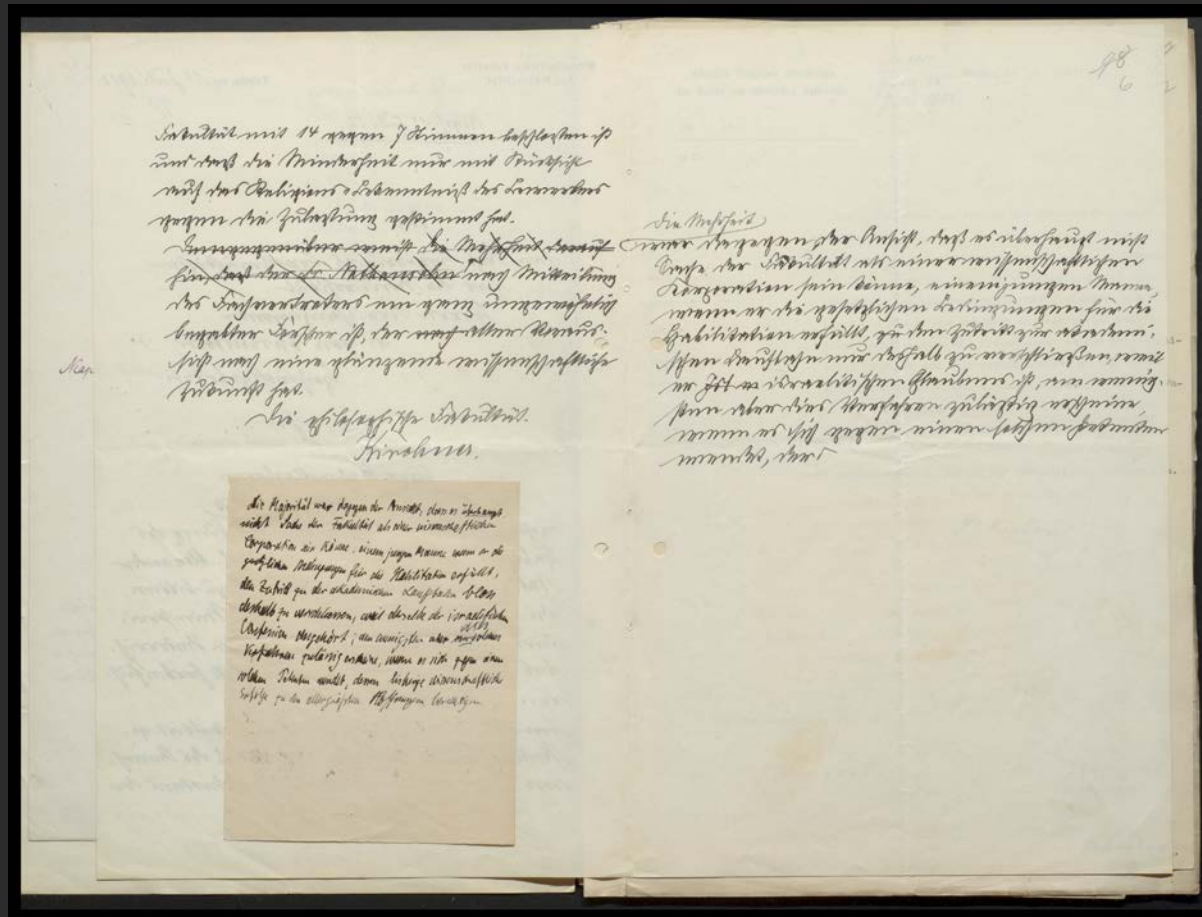 Fakultät mit 14 gegen 7 Stimmen beschlossen ist
und daß die Minderheit nur mit Rücksicht
auf das Religions-Bekenntniß des Bewerbers
gegen die Zulassung gestimmt hat.
Demgegenüber weist die Mehrheit darauf
hin, daß der Hr. nach Mitteilung
des Fachvertreters ein ganz ungewöhnlich
begabter Forscher ist, der nach aller Voraus-
sicht noch eine glänzende wissenschaftliche
Zukunft hat.
Die philosophische Fakultät.
Kirchner.
Die Majorität war dagegen der Ansicht, dass es überhaupt
nicht Sache der Fakultät als einer wissenschaftlichen
Corporation sein könne, einem jungen Manne wenn er die
gesetzlichen Bedingungen für die Habilitation erfüllt,
den Zutritt zu der akademischen Laufbahn bloss
deshalb zu verschliessen, weil derselbe der israelitischen
Confession angehört; am wenigsten aber dies
Verfahren zulässig erscheine, wenn es sich gegen einen
solchen Petenten wendet, dessen bisherige wissenschaftliche
Erfolge zu den Hoffnungen berechtigen
98
6
Die Mehrheit
war dagegen der Ansicht, daß es überhaupt nicht
Sache der Fakultät als einer wissenschaftlichen
Korporation sein könne, einem jungen Manne,
wenn er die gesetzlichen Bedingungen für die
Habilitation erfüllt, den Zutritt zur akademi-
schen Laufbahn nur deshalb zu verschließen, weil
er israelitischen Glaubens ist, am wenig-
sten aber dies Verfahren zulässig erscheine,
wenn es sich gegen einen solchen Petenten
wendet, der